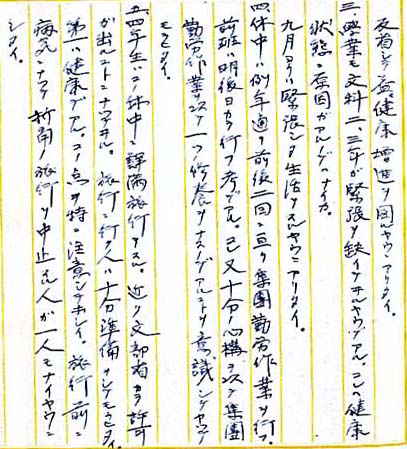 反省シテ益〻健康増進ヲ図ルヤウニアリタイ。
三、授業モ文科二、三年ガ緊張ヲ缺イテヰルヤウデアル。コレハ健康
状態ニ原因ガアルノデハナイカ。
九月ヨリハ緊張シタ生活ヲスルヤウニアリタイ。
四、休中ハ例年通リ前後二回ニ亘リ集團勤労作業ヲ行フ。
前班ハ明後日カラ行フ考デアル。已ニ又十分ノ心構ヲ以テ集團
勤労作業ヲ以テ一ツノ修養ヲナスノデアルコトヲ意識シテヤッテ
モラヒタイ。
五、四年生ハコノ休中ニ準備旅行ヲスル。近ク文部省カラ許可
ガ出ルコトニナッテヰル。旅行ニ行ク人ハ十分準備ヲシテモラヒタイ。
第一ハ健康デアル。コノ点ヲ特ニ注意シテホシイ。旅行前ニ
病気ニナッテ折角ノ旅行ヲ中止スル人ガ一人モナイヤウニ
シタイ。